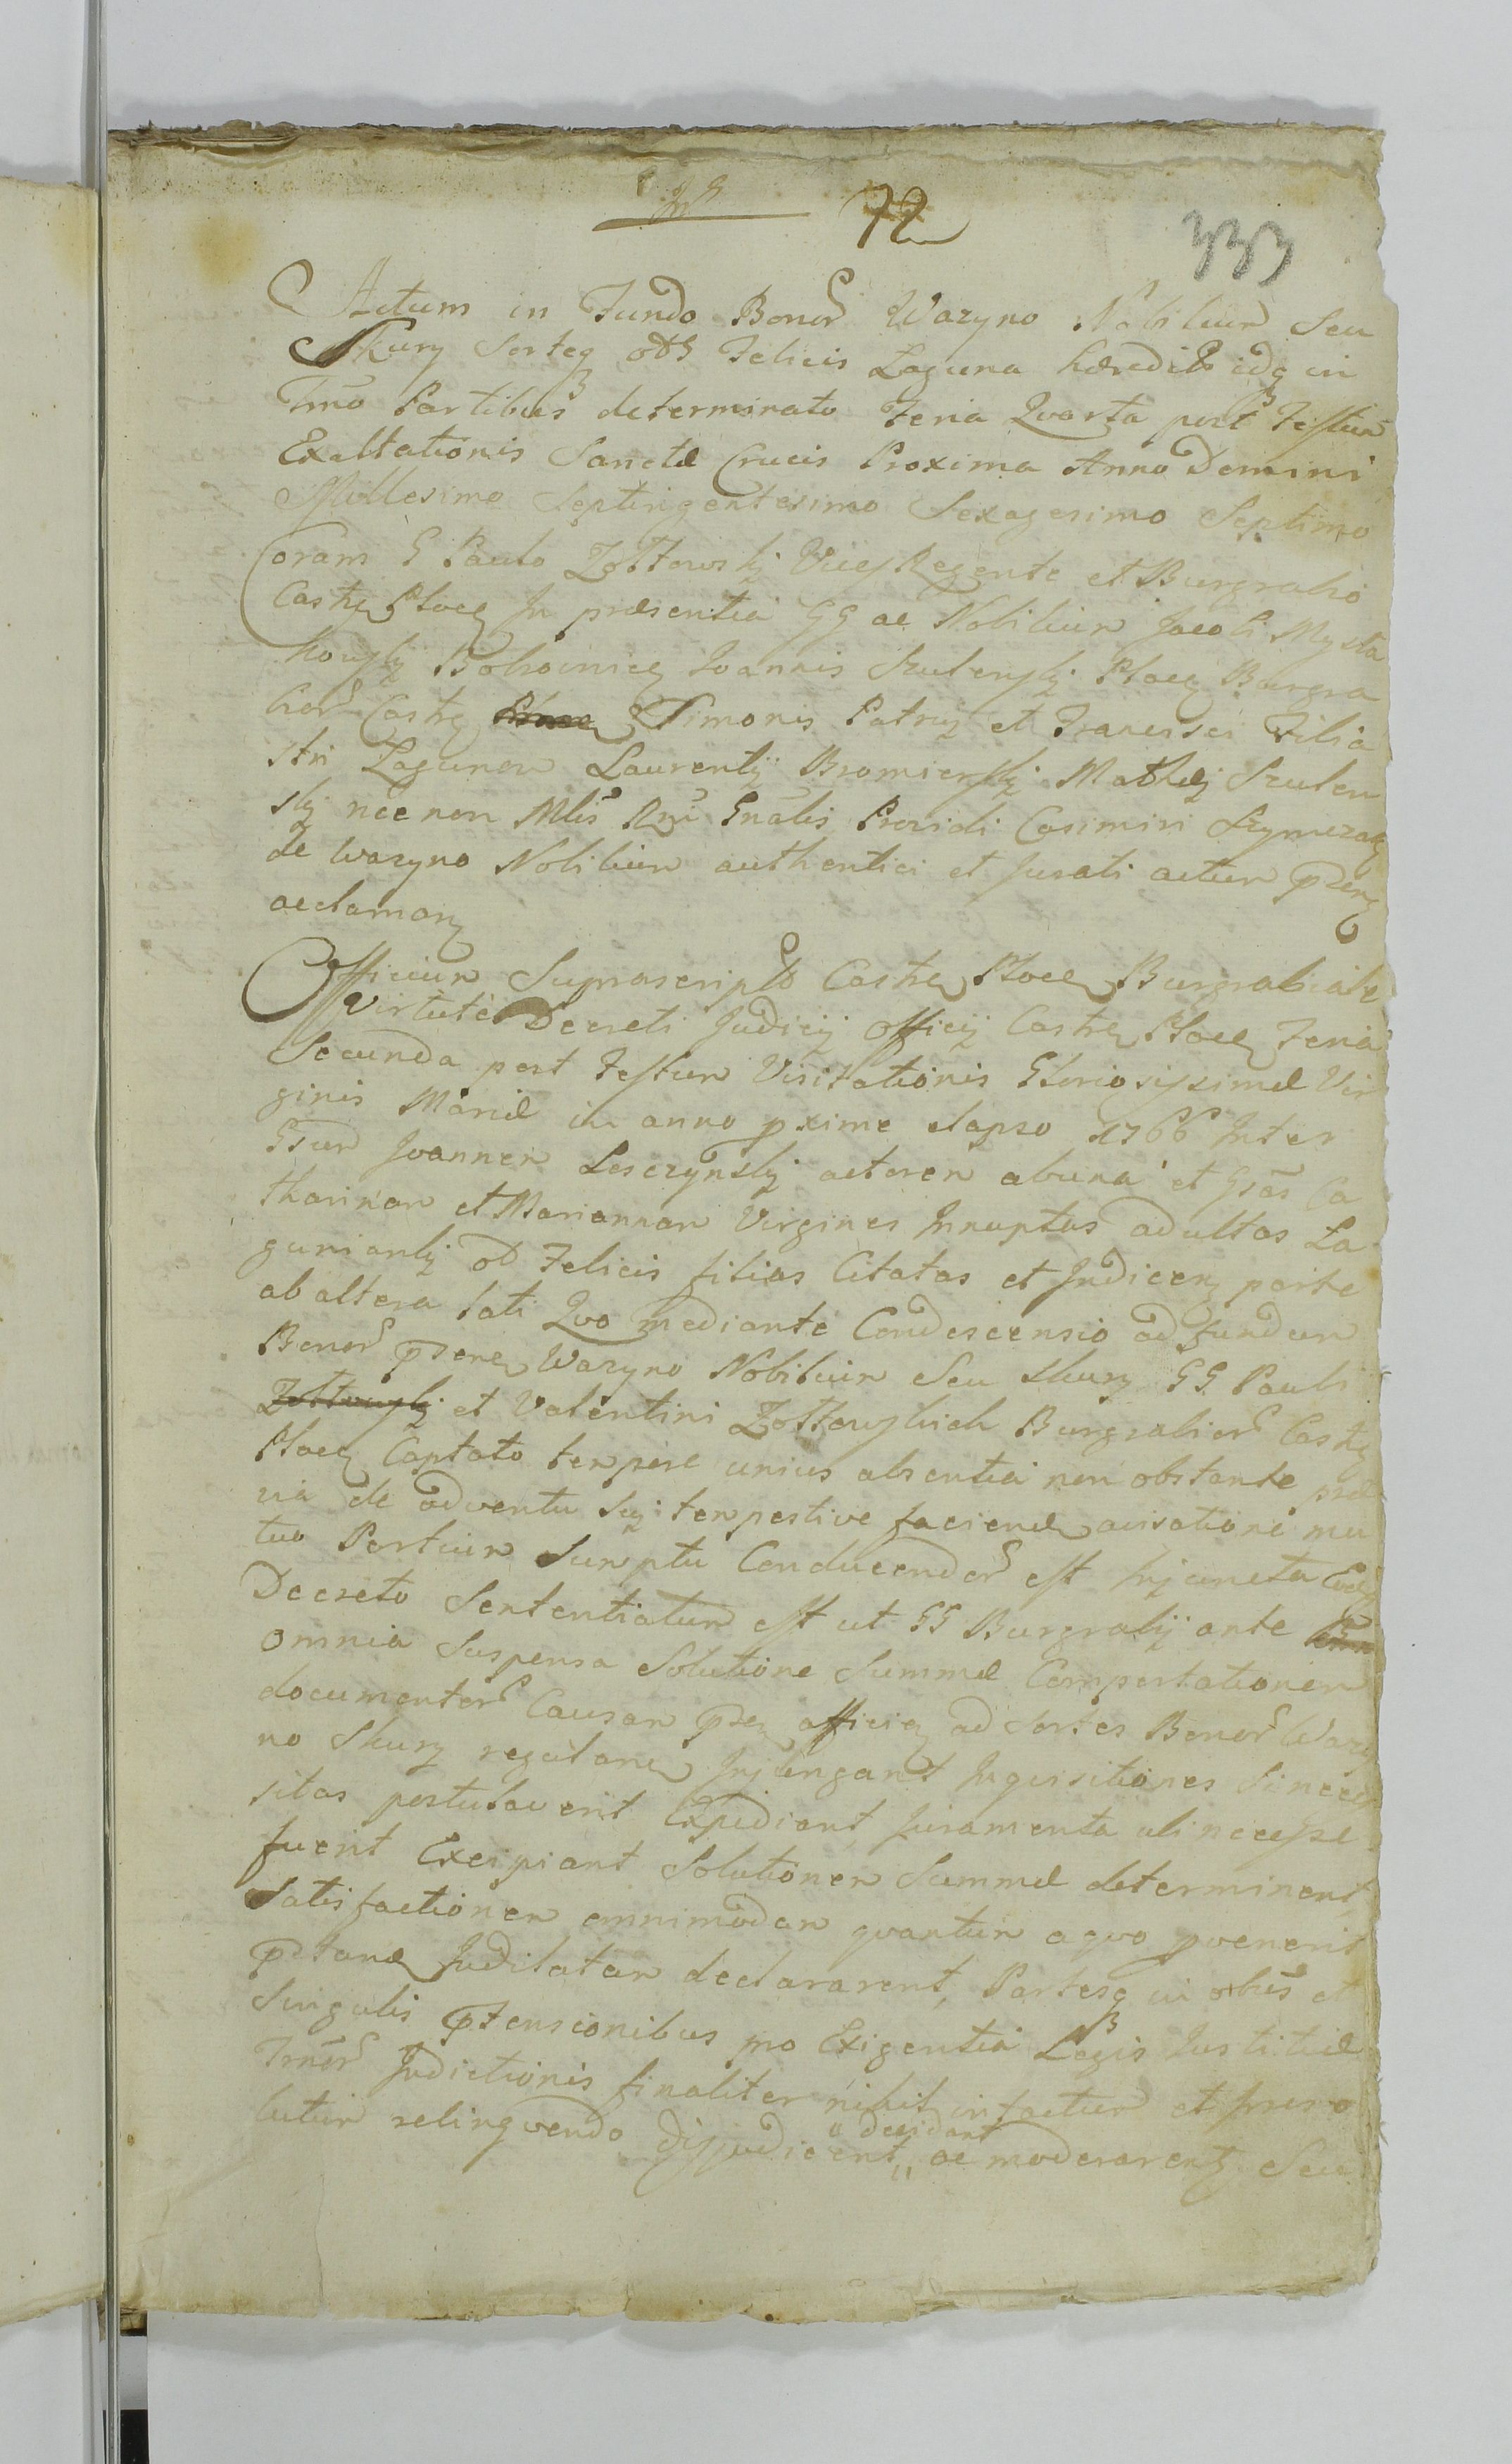 72
333
Actum in Fundo Bonor Wazyno Nobilium Seu
Skury Sorteq Felicis Laguna hæredis idq in
Trno Partibus determinato Feria Qvarta post Festum
Exaltationis Sanctæ Crucis Proxima Anno Domini
Millesimo Septingentesimo Sexagesimo Septimo
Coram G Paulo Zołtowskj Vices Regente et Burgrabio
Castr Ploce In præsentia GG ac Nobilium Jacobi Mysta
kowskj Joannis Szulenskj Ploce Burgra
bior Castr Simonis Patruj et Francisci Filia
stri Lagunow Laurentij Bromierskj Mathæj Szulen
skj nec non Mlis Rni Gnalis Providi Casimiri Szymczak
de Wazyno Nobilium authentici et Jurati actum præn
acclaman
Officium Suprascripto Castr Ploce Burgrabiale
Virtute Decreti Judicij officij Castr Ploce Feria
Secunda post Festum Visitationis Gloriosissimæ Vir
ginis Mariæ in anno pxime elapso 1766 Inter
Gsum Joannem Lesczynskj actorem ab una et Gsas Ca
tharinam et Mariannam Virgines Innuptas adultas La
gunianki Felicis filias Citatas et Indicen parte
ab altera lati Qvo mediante Condescensio ad fundum
Bonor psene Wazyno Nobilium Seu Skury GG Pauli
Zołtowskj et Valentini Zołtowskich Burgrabior Castr
Ploce Captato tempore unius absentia non obstante præ
via de adventu Suj tempestive faciend avisatione mu
tuo Partium Sumptu Conducendor est Injuncta Eoq
Decreto Sententiatum est ut GG Burgrabij ante
omnia Suspensa Solutione Summæ Comportationem
documentor Causam officij ad Sortes Bonor Wazy
no Skury regulan Injungant Inqvisitiones Si neces
sitas postulaverit Expediant, Juramenta ubi necesse
fuerit Excipiant Solutionem Summæ determinent,
Satisfactionem omnimodam qvantum a qvo pvenerit
declararent, Partesq in obus et
Singulis ptensionibus pro Exigentia Legis Justitiæ
Trnor Judictionis finaliter nihil infactum et Irreso
lutum relinqvendo Disjudicent,, decidant ac moderarent Seu